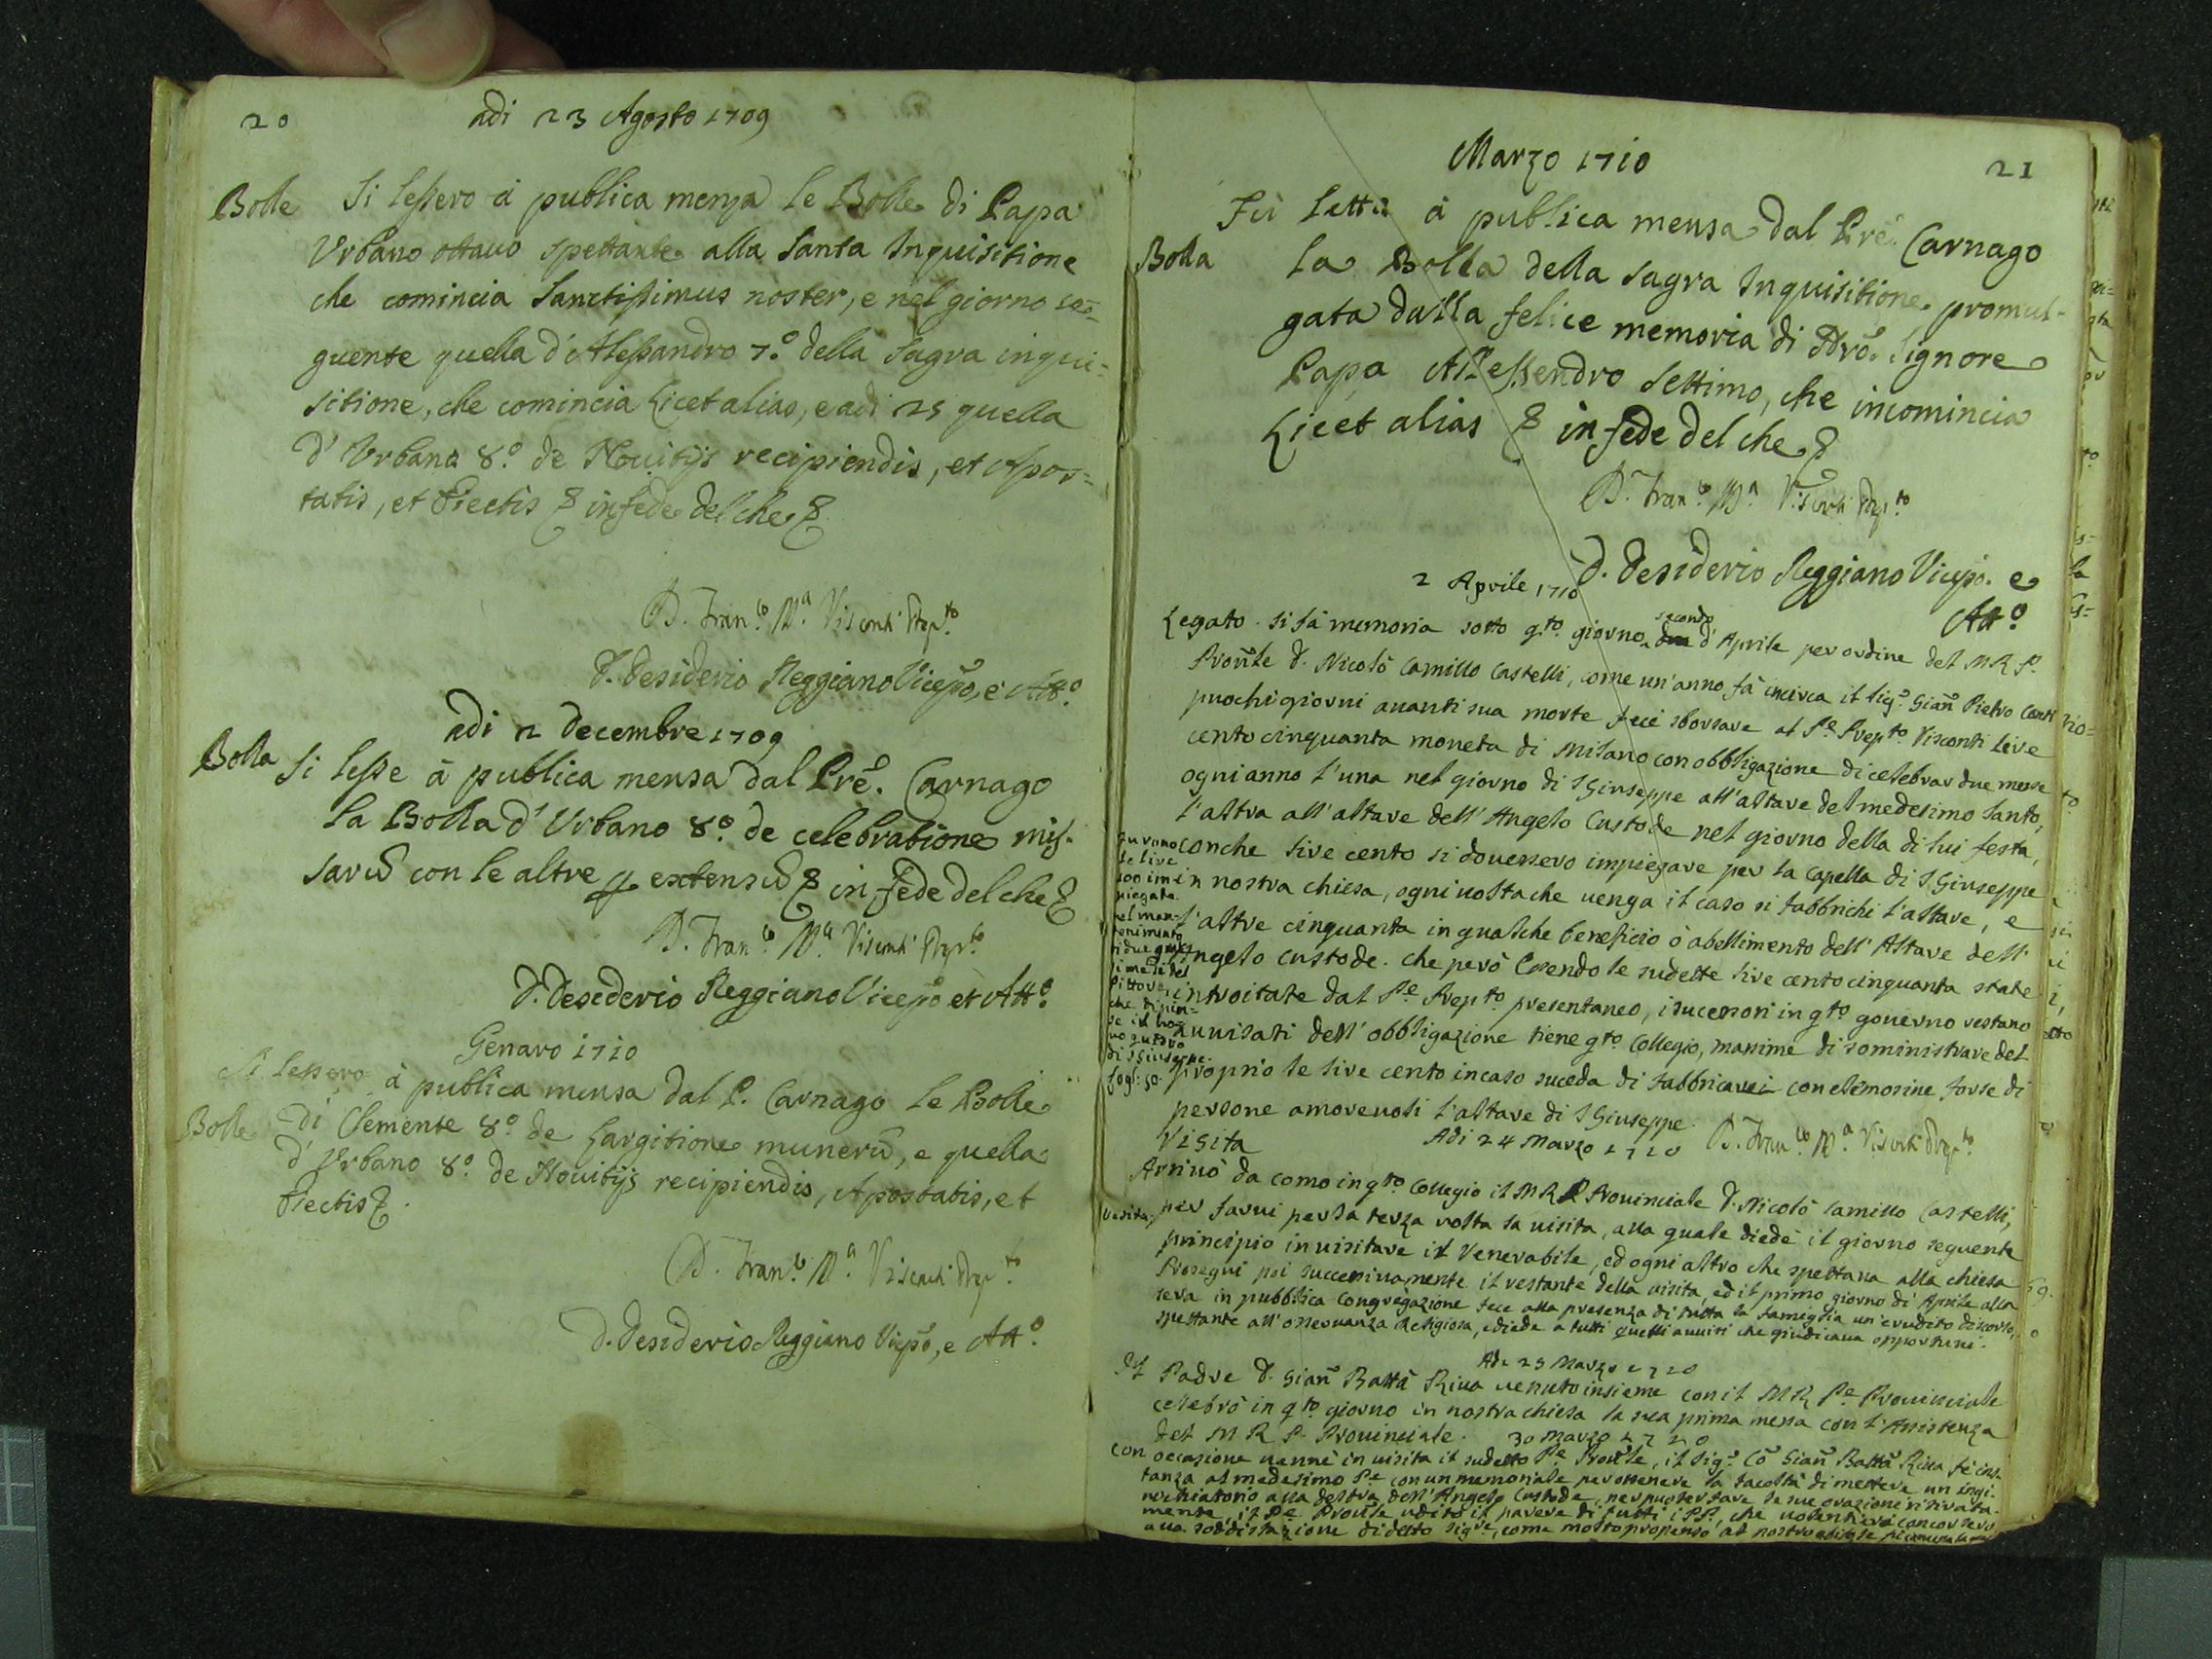 20
adi 23 Agosto 1709
Bolle Si lessero à publica mensa le Bolle di Papa
Urbano ottauo spettante alla Santa Inquisitione
che comincia Sanctissimus noster, e nel giorno se=
guente quella d'Alessandro 7.º della Sagra inqui=
sitione, che comincia Licet alias, e adi 25 quella
d'Urbano 8.º de Nouitijs recipiendis, et Apos=
tatis, et Eiectis & in fede del che &
D. Fran.co M.a Visconti Prep.to
D. Desiderio Reggiano Vicepõ, e Att.º
adi 2 Decembre 1709
Bolla Si lesse à publica mensa dal Prẽ. Carnago
la Bolla d'Urbano 8.º de celebratione mis-
sarũ con le altre p extensũ & in fede del che &
D. Fran.co M.a Visconti Prep.to
D. Desiderio Reggiano Vicepõ et Att.º
Genaro 1710
Si lessero à publica mensa dal P. Carnago le Bolle
Bolle di Clemente 8.º de Largitione munerũ, e quella
d'Urbano 8.º de Nouitijs recipiendis, Apostatis, et
Eiectis &.
D. Fran.co M.a Visconti Prep.to
D. Desiderio Reggiano Vicepõ, e Att.º
Marzo 1710
21
Fù letta à publica mensa dal Prẽ. Carnago
Bolla la Bolla della Sagra Inquisitione promul-
gata dalla felice memoria di Nrõ. Signore
Papa Alessendro Settimo, che incomincia
Licet alias & in fede del che &
D. Fran.co M.a Visconti Prep.to
D. Desiderio Reggiano Vicepo. e
Att.º
2 Aprile 1710
Legato. si fà memoria sotto q.to giorno secondo d'Aprile per ordine del M R P.
Prouñle D. Nicolò Camillo Castelli, come un'anno fà incirca il Sig.r Giañ Pietro Conti
puochi giorni auanti sua morte fece sborsare al P.e Prep.to Visconti lire
cento cinquanta moneta di Milano con obbligazione di celebrar due messe
ogni anno l'una nel giorno di S Giuseppe all'altare del medesimo Santo,
l'altra all'altare dell'Angelo Custode nel giorno della di lui festa,
con che lire cento si douessero impiegare per la Capella di S Giuseppe
in nostra chiesa, ogni uolta che uenga il caso si fabbrichi l'altare, e
l'altre cinquanta in qualche beneficio ò abellimento dell'Altare dell'
Angelo custode. che però essendo le sudette lire cento cinquanta state
introitate dal P.e Prep.to presentaneo, i sucessori in q.to gouerno restano
auuisati dell'obbligazione tiene q.to Collegio, massime di soministrare del
proprio le lire cento in caso suceda di fabbricarsi con elemosine forse di
persone amoreuoli l'altare di S Giuseppe.
furono
le lire
100 im
piegate
nel man-
tenimento
di due
mesi del
Pittore,
che dipin=
se il
quadro
di S Giuseppe
fogl: 50.
D. Fran.co M.a Visconti Prep.to
Visita Adi 24 Marzo 1710
Arriuò da como in q.to Collegio il M R P Prouinciale D. Nicolò Camillo Castelli,
Visita. per farui per la terza volta la uisita, alla quale diede il giorno seguente
principio in uisitare il Venerabile, ed ogni altro che spettaua alla chiesa
Proseguì poi successiuamente il restante della uisita, ed il primo giorno di Aprile alla
sera in pubblica Congregazione fece alla presenza di tutta la fameglia un'erudito discorso,
spettante all'osseruanza Religiosa, e diede a tutti quelli auuisi che giudicaua opportuni.
Adi 25 Marzo 1710
Il Padre D. Giañ Battã Riua uenuto insieme con il M R P.e Prouinciale
celebrò in q.to giorno in nostra chiesa la sua prima messa con l'Assistenza
del M R P. Prouinciale. 30 Marzo 1710
Con occasione uenne in uisita il sudetto P.e Prouñle, il Sig.r Cõ Giañ Battã Riua fè ins-
tanza al medesimo P.e con un memoriale per ottenere la facoltà di mettere un ingi-
nochiatorio alla destra dell'Angelo Custode, per puoter fare le sue orazioni ritirata-
mente, il P.e Prouñle udito il parere di tutti i PP, che uolentieri concorsero
alla soddisfazione di detto Sig.re, come molto propenso al nostro